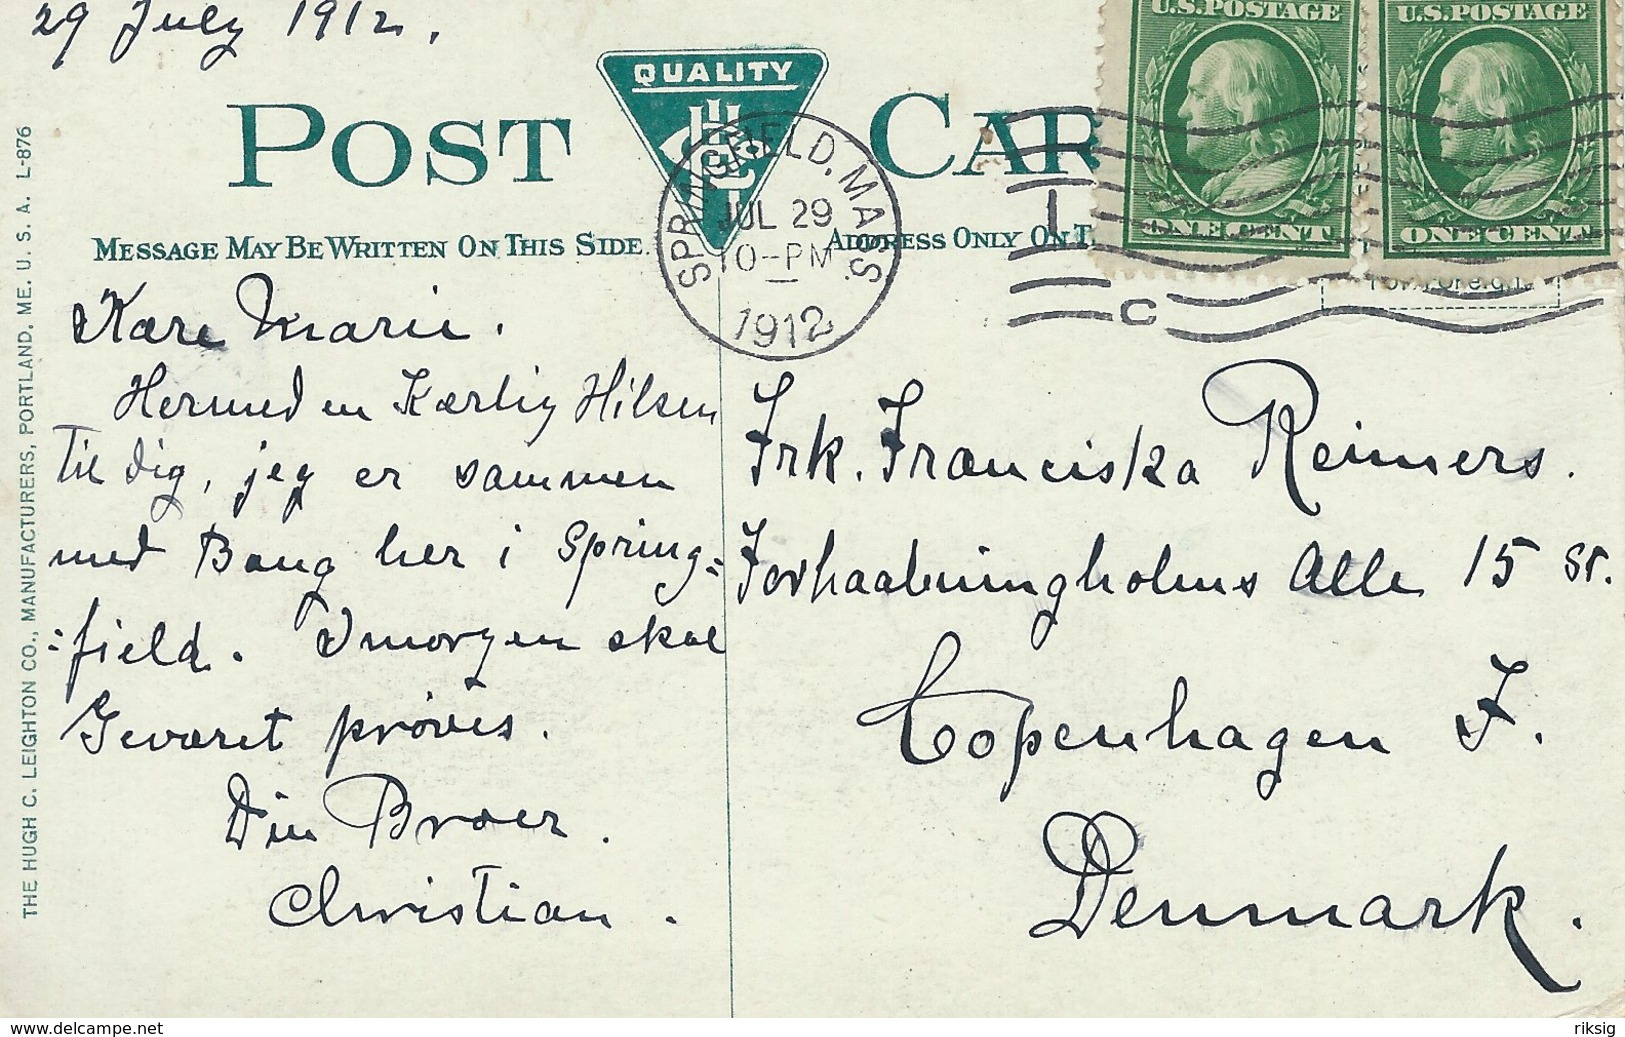 29 July 1912.
U.S.POSTAGE
U.S.POSTAGE
QUALITY
POST CAR
SPRINGFIELD, MASS.
JUL 29
10-PM
1912
C
ONE CENT
ONE CENT
MESSAGE MAY BE WRITTEN ON THIS SIDE
ADDRESS ONLY ON T
Kære Marie.
Hermed en Kærlig Hilsen
Til dig, jeg er sammen
med Bang her i Spring=
=field. Imorgen skal
Geværet prøves.
Din Broer.
Christian.
Frk. Franciska Reimers.
Forhaabningholms Alle 15 St.
Copenhagen F.
Denmark.
THE HUGH C. LEIGHTON CO., MANUFACTURERS, PORTLAND, ME. U. S. A. L-876
www.delcampe.net
riksig